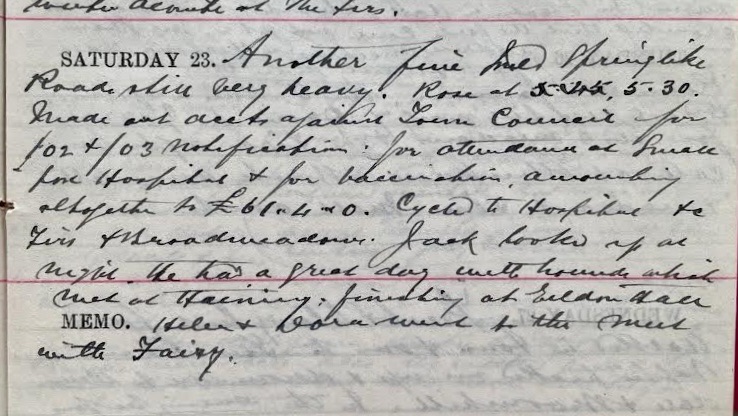 wrote accounts at The Firs.
SATURDAY 23. Another fine mild Springlike
Roads still very heavy. Rose at 5.45, 5.30.
Made out accts against Town Council for
/02 & /03 notification: for attendance at Small
pox Hospital & for vaccination, amounting
altogether to £61-4-0. Cycled to Hospital &c
Firs & Broadmeadows. Jack looked up at
night. He had a great day with hounds which
met at Haining: finishing at Eildon Hall
MEMO. Helen & Dora went to the meet
with Fairy.